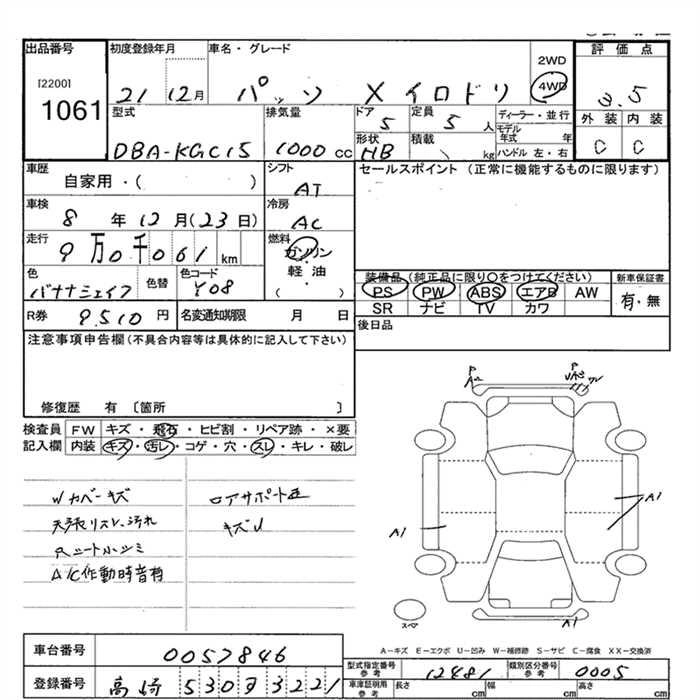 出品番号 初度登録年月 車名・グレード 2WD 評価点
[2200] 21 12月 パッソ X イロドリ 4WD 3.5
1061 型式 排気量 ドア 定員 ディーラー・並行 外装 内装
DBA-KGC15 1000 cc 5 5 人 モデル年式 年 C C
形状 HB 積載 kg ハンドル 左・右
車歴 自家用・( ) シフト AT セールスポイント (正常に機能するものに限ります)
車検 8 年 12 月 (23 日) 冷房 AC
走行 9万0千061 km 燃料 ガソリン
軽油
( )
色 バナナシェイク 色替 色コード Y08
装備品 (純正品に限り○をつけてください) 新車保証書
PS PW ABS エアB AW 有・無
SR ナビ TV カワ
R券 9510 円 名変通知期限 月 日 後日品
注意事項申告欄(不具合内容等は具体的に記入して下さい)
修復歴 有 〔箇所 〕
検査員 FW キズ・飛石・ヒビ割・リペア跡・×要
記入欄 内装 キズ・汚レ・コゲ・穴・スレ・キレ・破レ
Wカバーキズ ロアサポート歪
天張リスレ、汚れ キズU
A/C作動時音有
A1
A1
スペア
A-キズ E-エクボ U-凹み W-補修跡 S-サビ C-腐食 XX-交換済
車台番号 0057846 型式指定番号 参考 12481 類別区分番号 参考 0005
登録番号 高崎 530 ヲ 3221 車庫証明用 参考 長さ cm 幅 cm 高さ cm